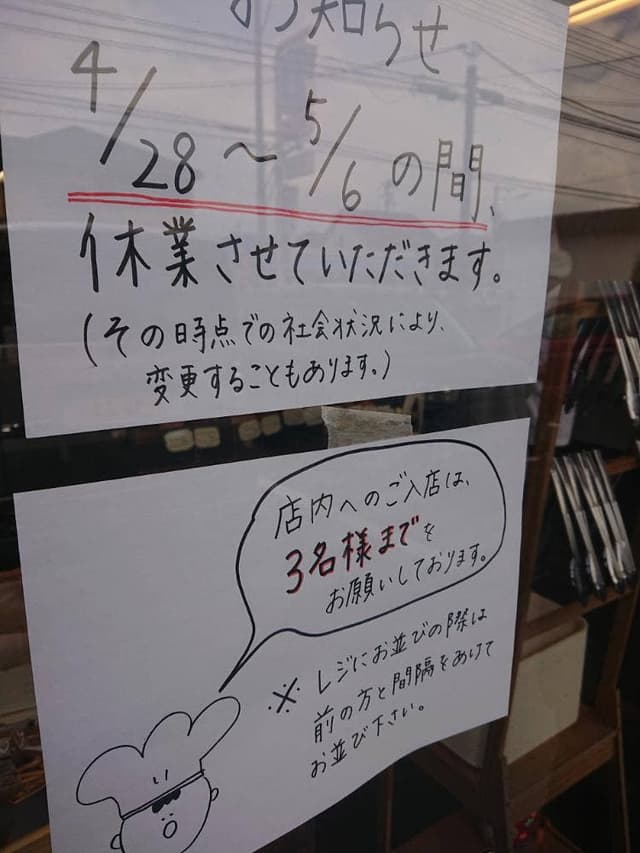 お知らせ
4/28～5/6の間、
休業させていただきます。
(その時点での社会状況により、
変更することもあります。)
店内へのご入店は、
3名様までを
お願いしております。
※レジにお並びの際は
前の方と間隔をあけて
お並び下さい。
い